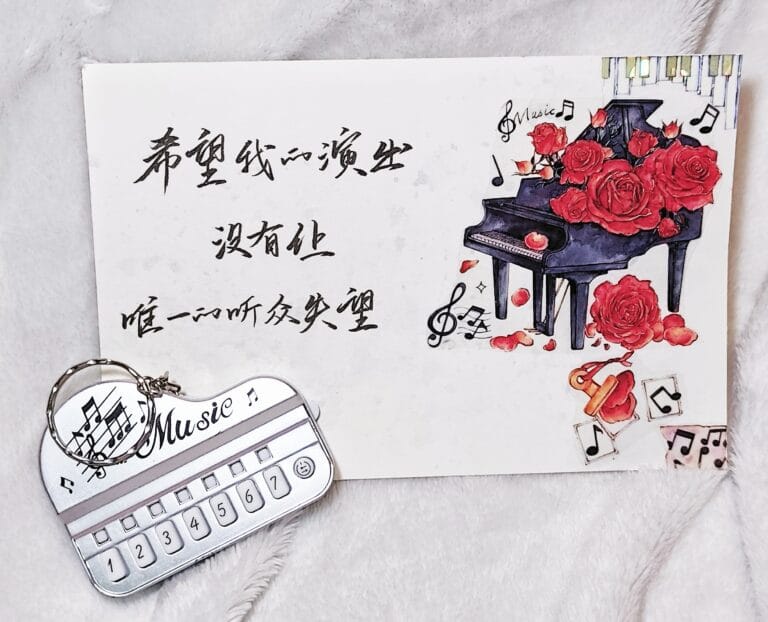 希望我的演出
没有让
唯一的听众失望
Music
Music
1 2 3 4 5 6 7